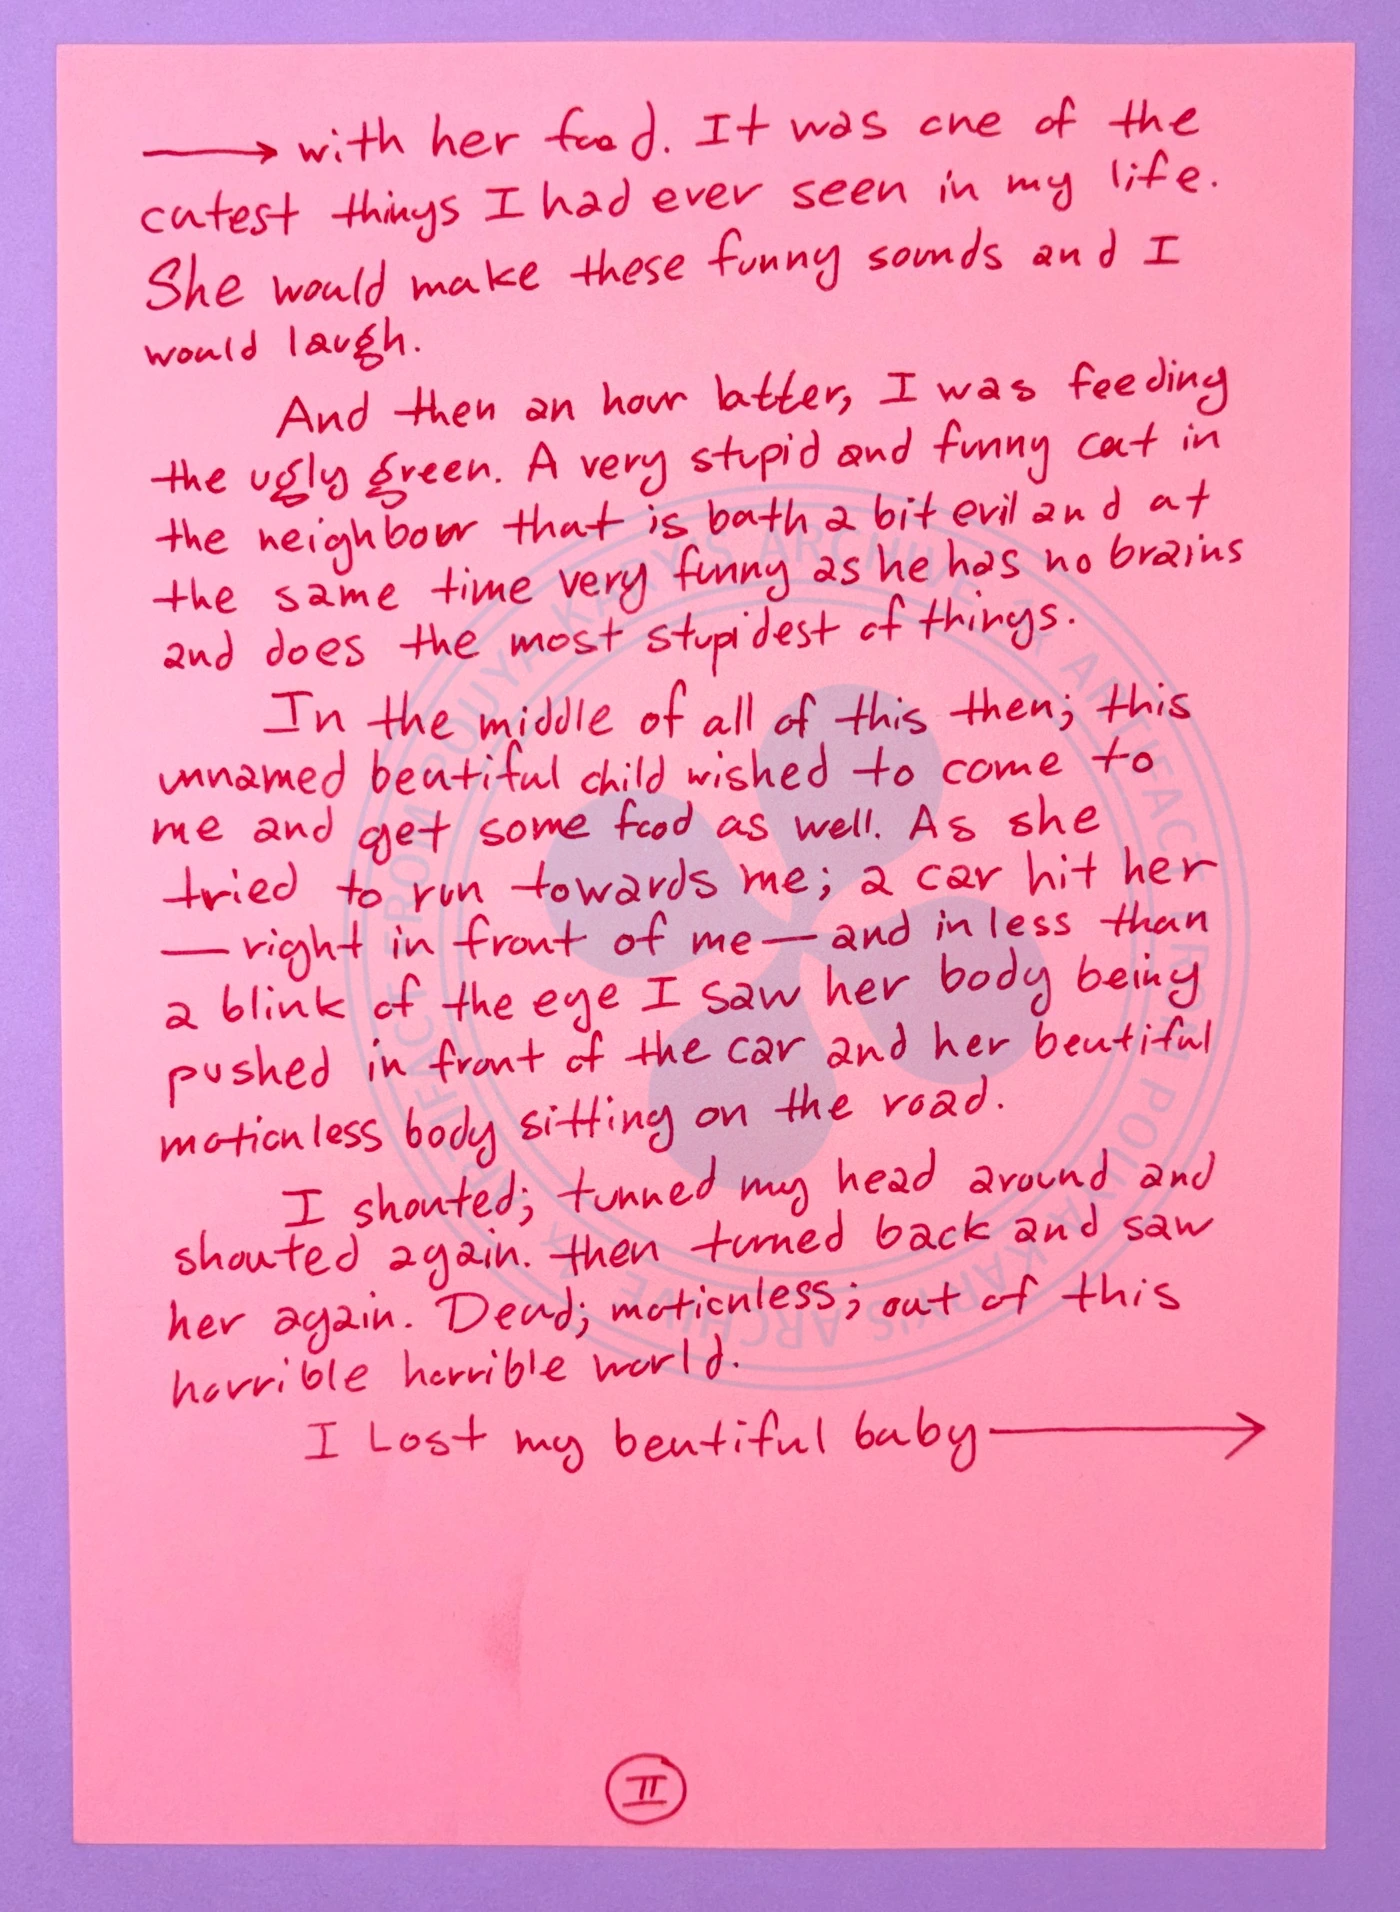 → with her food. It was one of the
cutest things I had ever seen in my life.
She would make these funny sounds and I
would laugh.
And then an hour latter, I was feeding
the ugly green. A very stupid and funny cat in
the neighbour that is both a bit evil and at
the same time very funny as he has no brains
and does the most stupidest of things.
In the middle of all of this then; this
unnamed beutiful child wished to come to
me and get some food as well. As she
tried to run towards me; a car hit her
— right in front of me — and in less than
a blink of the eye I saw her body being
pushed in front of the car and her beutiful
motionless body sitting on the road.
I shouted; tunned my head around and
shouted again. then turned back and saw
her again. Dead; motionless; out of this
horrible horrible world.
I Lost my beutiful baby →
II
ARTIFACT FROM POUYA KARY'S ARCHIVE
ARTIFACT FROM POUYA KARY'S ARCHIVE